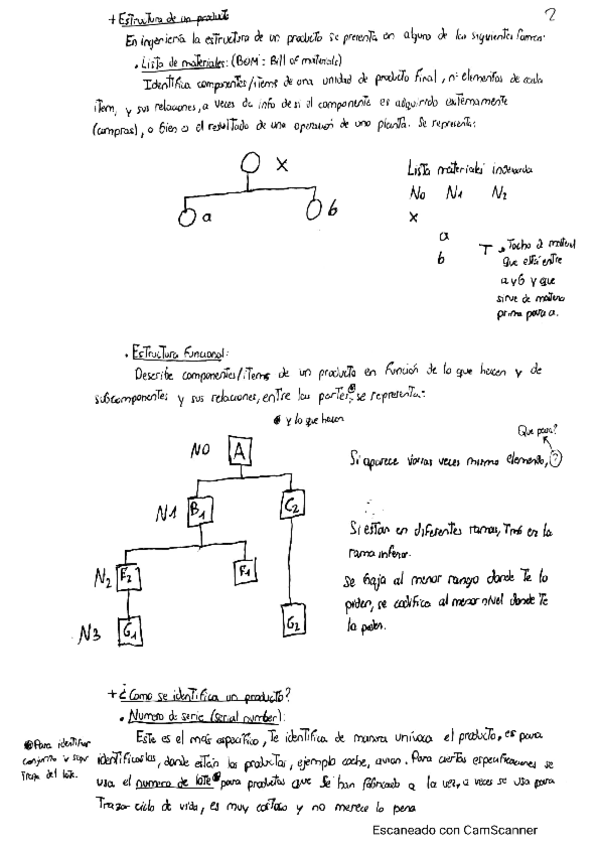 2
+ Estructura de un producto
En ingeniería la estructura de un producto se presenta en alguno de las siguientes formas:
. Lista de materiales: (BOM: Bill of materials)
Identifica componentes/items de una unidad de producto final, nº elementos de cada
item, y sus relaciones, a veces da info de si el componente es adquirido externamente
(compras), o bien es el resultado de una operación de una planta. Se representa:
X
a
b
Lista materiales indexada
N0 N1 N2
x
a
b
T
Tocho de material
que está entre
a y b y que
sirve de materia
prima para a.
. Estructura Funcional:
Describe componentes/items de un producto en función de lo que hacen y de
subcomponentes y sus relaciones, entre las partes, se representa:
y lo que hacen
N0 A
N1 B1 C2
N2 E2 F1
N3 G1 G2
Que pasa?
Si aparece varias veces mismo elemento, ?
Si están en diferentes ramas, en la
rama inferior.
Se baja al menor rango donde te lo
piden, se codifica al menor nivel donde te
lo piden.
+ ¿Como se identifica un producto?
. Numero de serie (serial number):
Este es el más específico, te identifica de manera unívoca el producto, es para
identificarlos, donde están los productos, ejemplo coche, avion. Para ciertas especificaciones se
usa el numero de lote para productos que se han fabricado a la vez, a veces se usa para
Trazar ciclo de vida, es muy costoso y no merece la pena
Para identificar
conjunto y seguir
del lote.
Escaneado con CamScanner